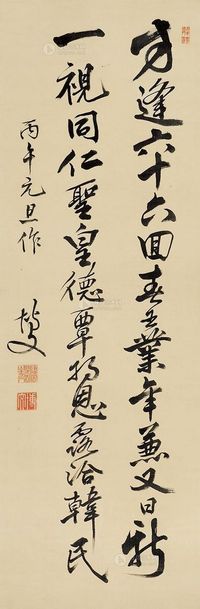 逢六十六回春業年兼又日新
一視同仁聖皇德覃將恩露洽韓民
丙午元旦作
博文